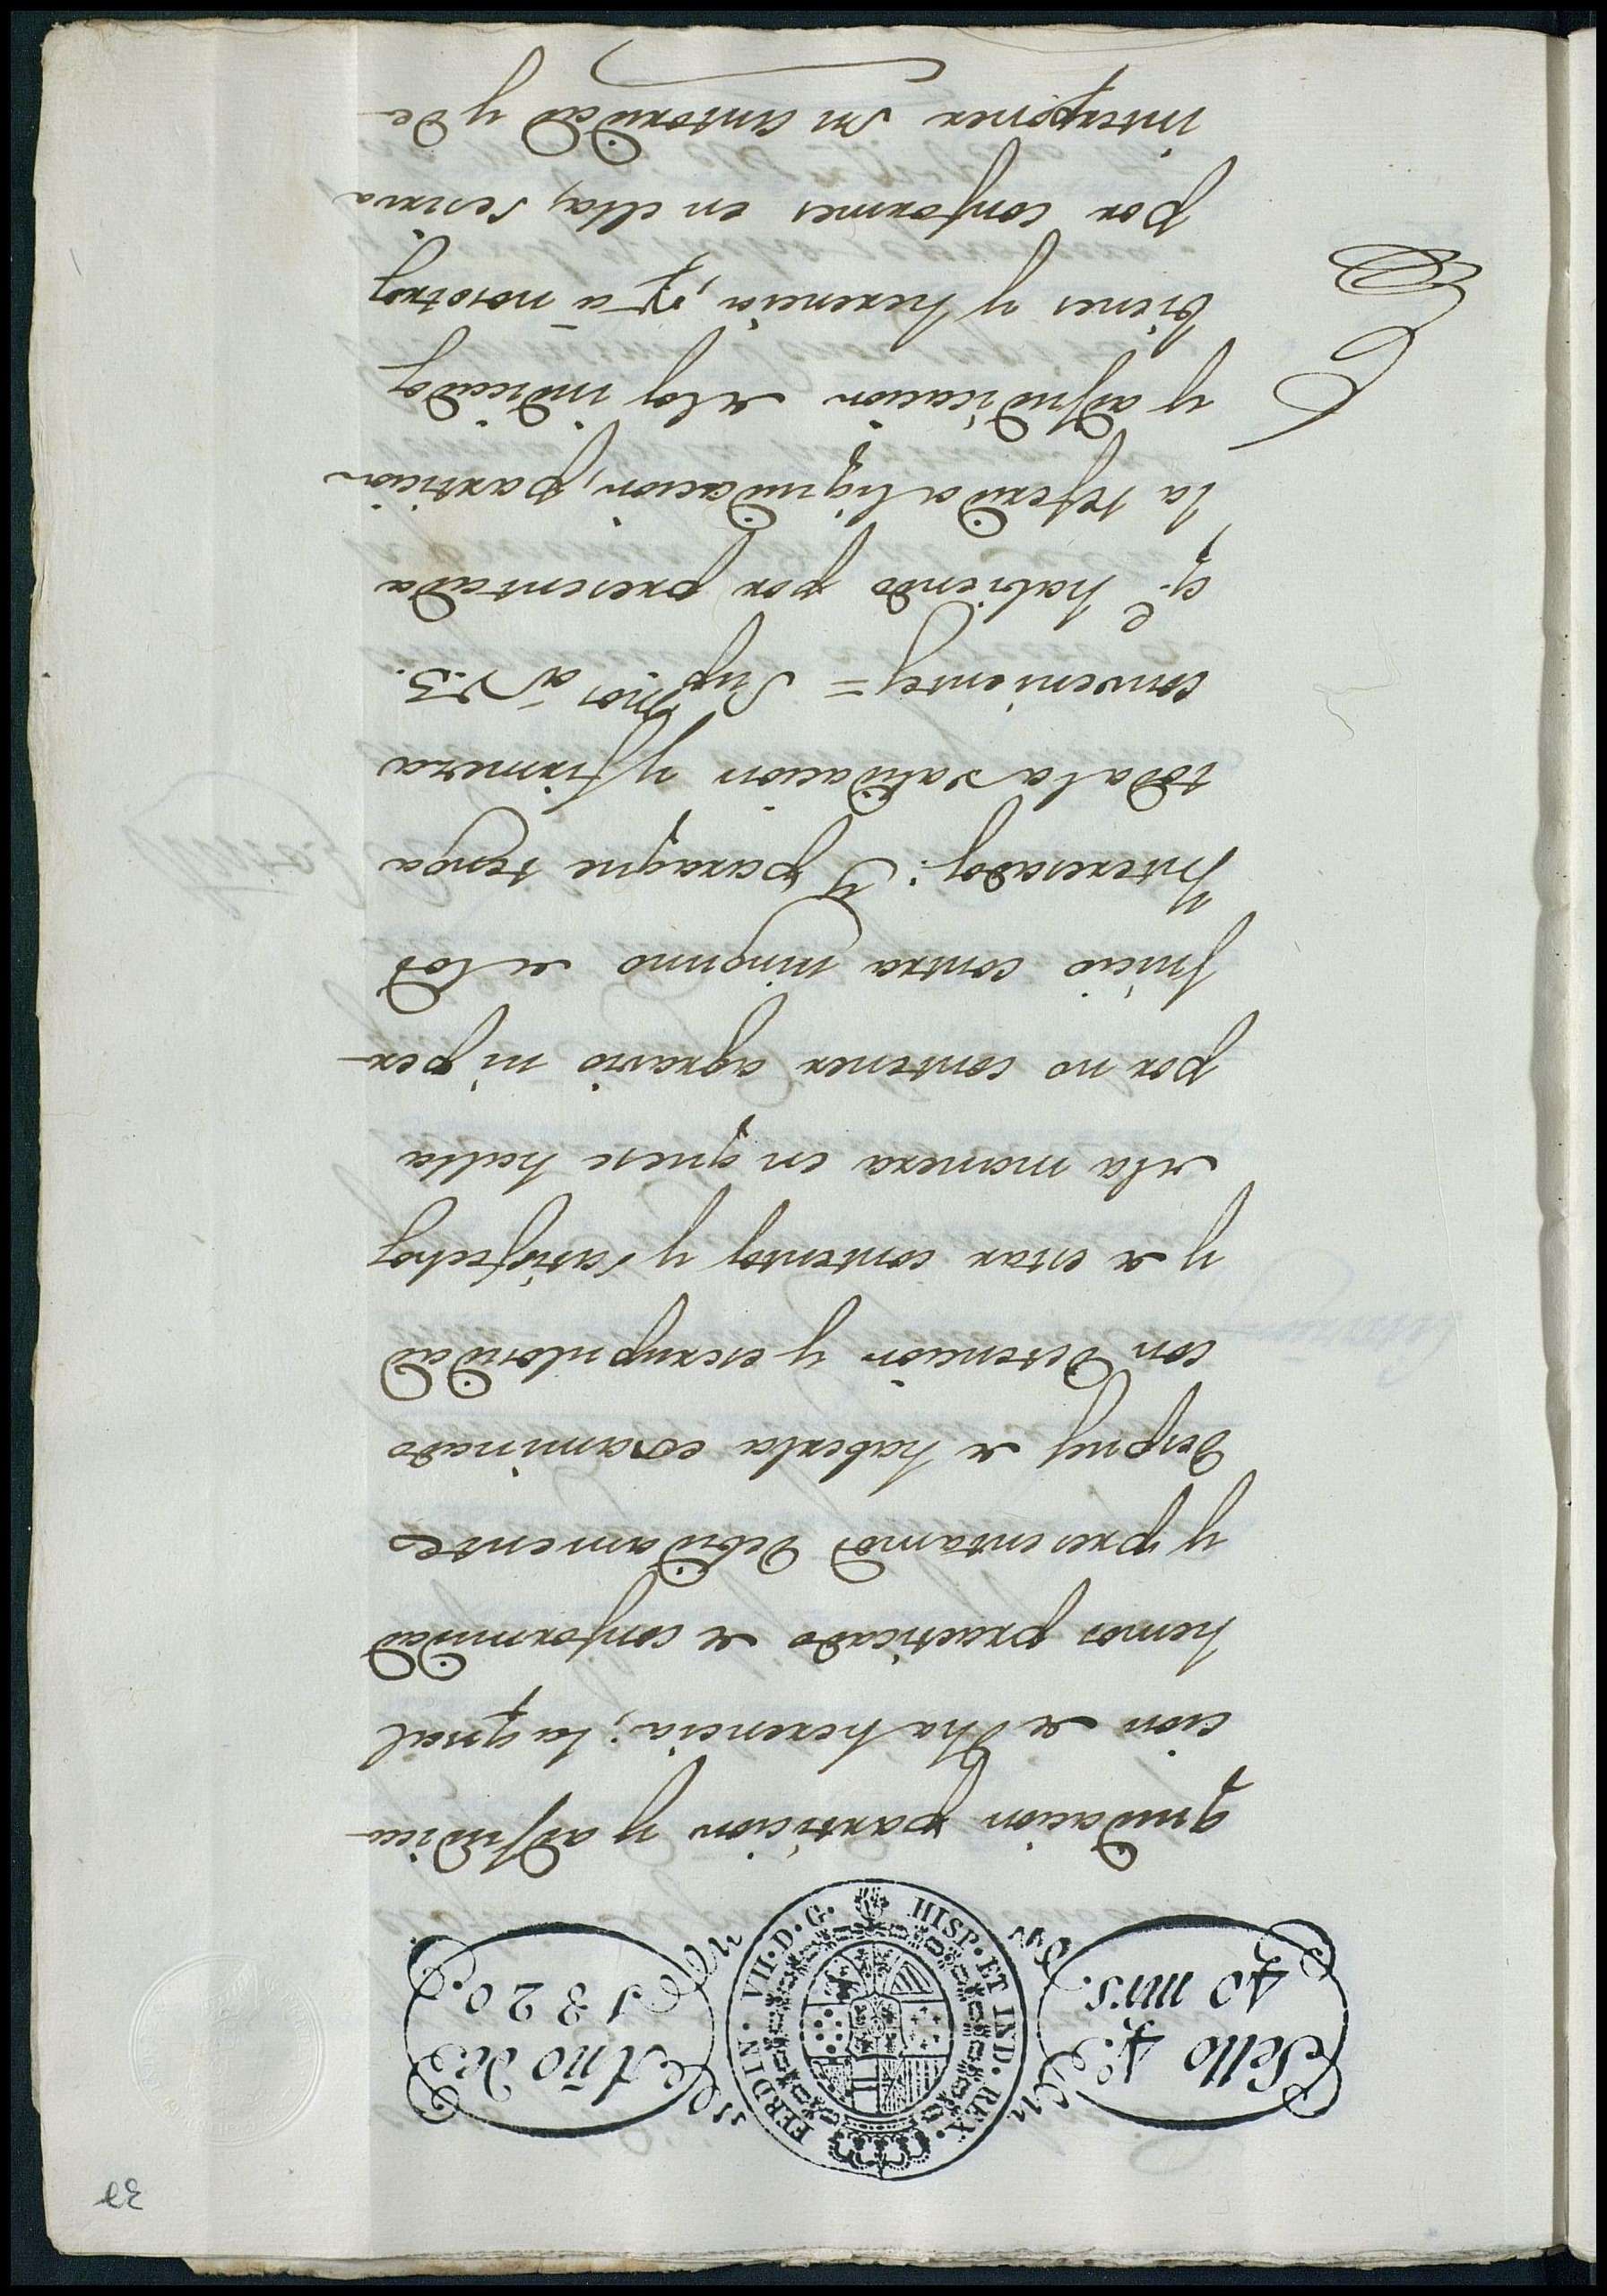 39
Sello 4.º
40 mrs.
FERDIN. VII. D. G. HISP. ET IND. REX.
Año de
1820.
quidacion particion y adjudica-
cion de dha herencia; la qual
hemos practicado de conformidad
y presentamos debidamente
despues de haberla examinado
con detencion y escrupulosidad
y de estar contentos y satisfechos
de la manera en que se halla
por no contener agravio ni per-
juicio contra ninguno de los
Interesados: Y para que tenga
toda la validacion y firmeza
conveniente = Supcamos a V.S.
q.e habiendo por presentada
la referida liquidacion, particion
y adjudicacion de los indicados
bienes y herencia, y a nosotros
por conformes en ella, se sirva
interponer su autoridad y de-